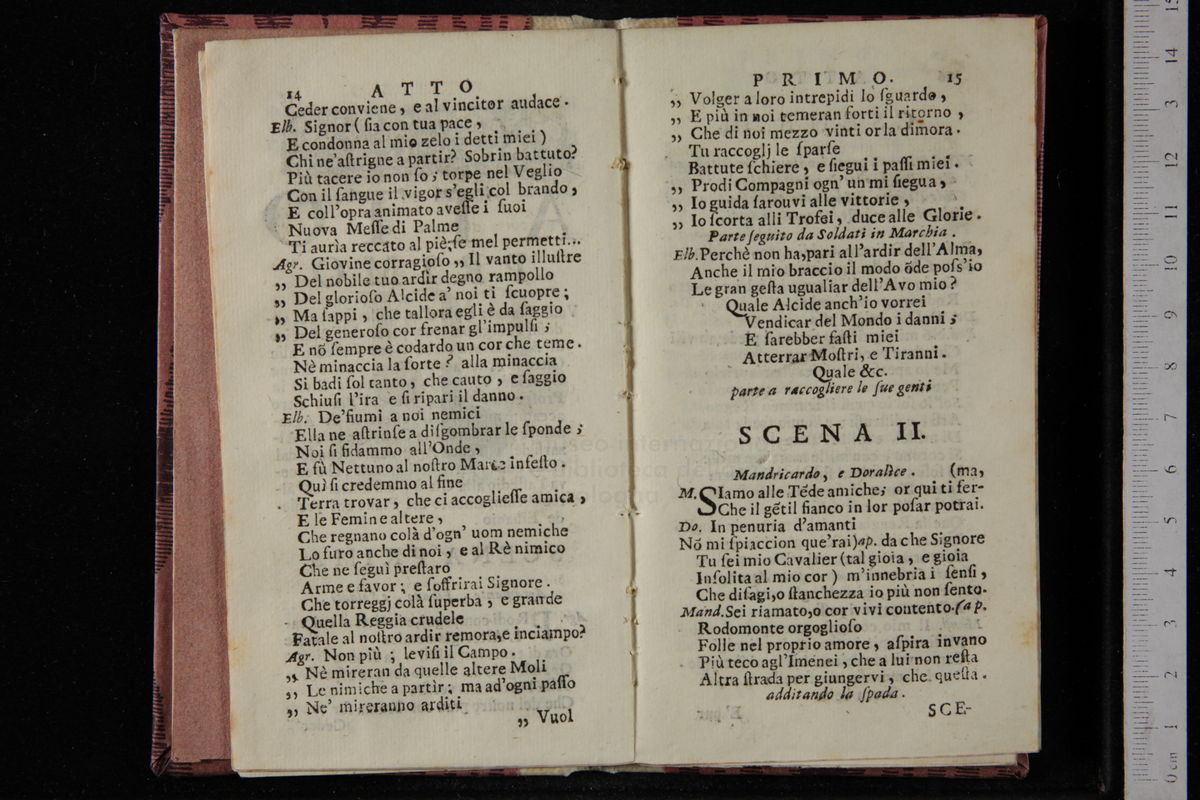 14 ATTO
Ceder conviene, e al vincitor audace.
Elb. Signor (ſia con tua pace,
E condonna al mio zelo i detti miei)
Chi ne'aſtrigne a partir? Sobrin battuto?
Più tacere io non ſo; torpe nel Veglio
Con il ſangue il vigor s'egli col brando,
E coll'opra animato aveſſe i ſuoi
Nuova Meſſe di Palme
Ti aurìa reccato al piè;ſe mel permetti...
Agr. Giovine corragioſo „ Il vanto illuſtre
„ Del nobile tuo ardir degno rampollo
„ Del glorioſo Alcide a' noi ti ſcuopre;
„ Ma ſappi, che tallora egli è da ſaggio
„ Del generoſo cor frenar gl'impulſi;
E nõ ſempre è codardo un cor che teme.
Nè minaccia la ſorte? alla minaccia
Si badi ſol tanto, che cauto, e ſaggio
Schiuſi l'ira e ſi ripari il danno.
Elb. De'fiumi a noi nemici
Ella ne aſtrinſe a diſgombrar le ſponde;
Noi ſi fidammo all'Onde,
E fù Nettuno al noſtro Marte infeſto.
Quì ſi credemmo al fine
Terra trovar, che ci accoglieſſe amica,
E le Femine altere,
Che regnano colà d'ogn' uom nemiche
Lo furo anche di noi, e al Rè nimico
Che ne ſeguì preſtaro
Arme e favor; e ſoffrirai Signore.
Che torreggj colà ſuperba, e grande
Quella Reggia crudele
Fatale al noſtro ardir remora,e inciampo?
Agr. Non più; leviſi il Campo.
„ Nè mireran da quelle altere Moli
„ Le nimiche a partir; ma ad'ogni paſſo
„ Ne' mireranno arditi
„ Vuol
PRIMO. 15
„ Volger a loro intrepidi lo ſguardo,
„ E più in noi temeran forti il ritorno,
„ Che di noi mezzo vinti or la dimora.
Tu raccoglj le ſparſe
Battute ſchiere, e ſiegui i paſſi miei.
„ Prodi Compagni ogn' un mi ſiegua,
„ Io guida ſarouvi alle vittorie,
„ Io ſcorta alli Trofei, duce alle Glorie.
Parte ſeguito da Soldati in Marchia.
Elb. Perchè non ha,pari all'ardir dell'Alma,
Anche il mio braccio il modo õde poſs'io
Le gran geſta ugualiar dell'Avo mio?
Quale Alcide anch'io vorrei
Vendicar del Mondo i danni;
E ſarebber faſti miei
Atterrar Moſtri, e Tiranni.
Quale &c.
parte a raccogliere le ſue genti
SCENA II.
Mandricardo, e Doralice. (ma,
M. SIamo alle Tẽde amiche; or qui ti fer-
Che il gẽtil fianco in lor poſar potrai.
Do. In penuria d'amanti
Nõ mi ſpiaccion que'rai)ap. da che Signore
Tu ſei mio Cavalier (tal gioia, e gioia
Inſolita al mio cor) m'innebria i ſenſi,
Che diſagi,o ſtanchezza io più non ſento.
Mand. Sei riamato,o cor vivi contento.(ap.
Rodomonte orgoglioſo
Folle nel proprio amore, aſpira invano
Più teco agl'Imenei, che a lui non reſta
Altra ſtrada per giungervi, che queſta.
additando la ſpada.
SCE-